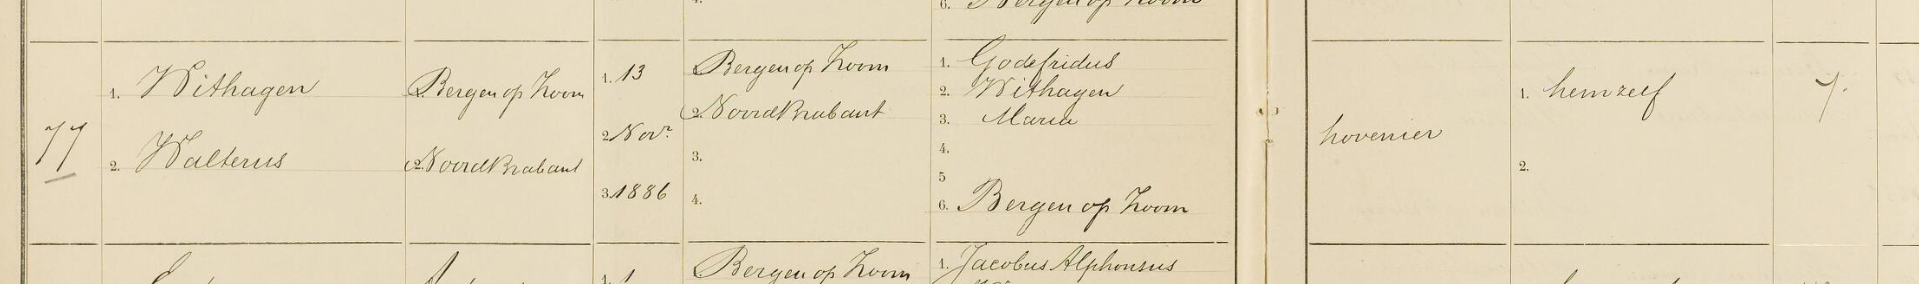 4.
6. Bergen op Zoom
77
1. Withagen
2. Walterus
1. Bergen op Zoom
2. Noordbrabant
1. 13
2 Novr.
3. 1886
Bergen op Zoom
2. Noordbrabant
3.
4.
1. Godefridus
2. Withagen
3. Maria
4.
5
6. Bergen op Zoom
hovenier
1. hemzelf
2.
7.
1. 1
Bergen op Zoom
1. Jacobus Alphonsus